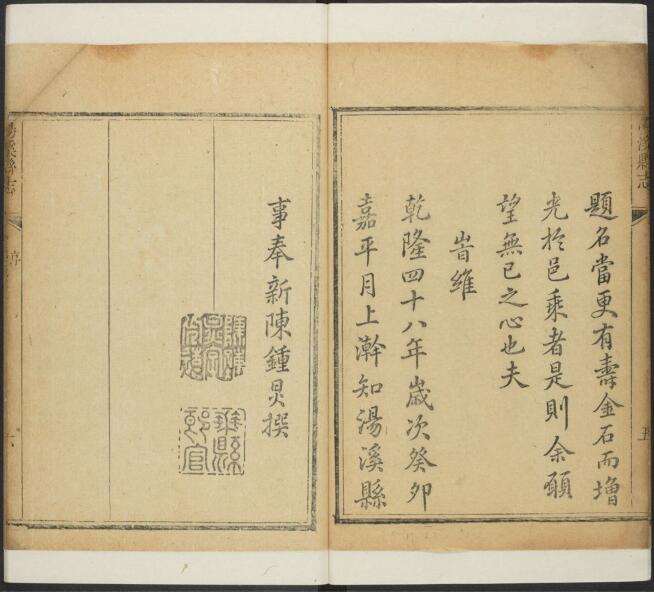 湯溪縣志
五
題名當更有壽金石而增
光於邑乘者是則余願
望無已之心也夫
峕維
乾隆四十八年歲次癸卯
嘉平月上澣知湯溪縣
事奉新陳鍾炅撰
湯溪縣志
序
六